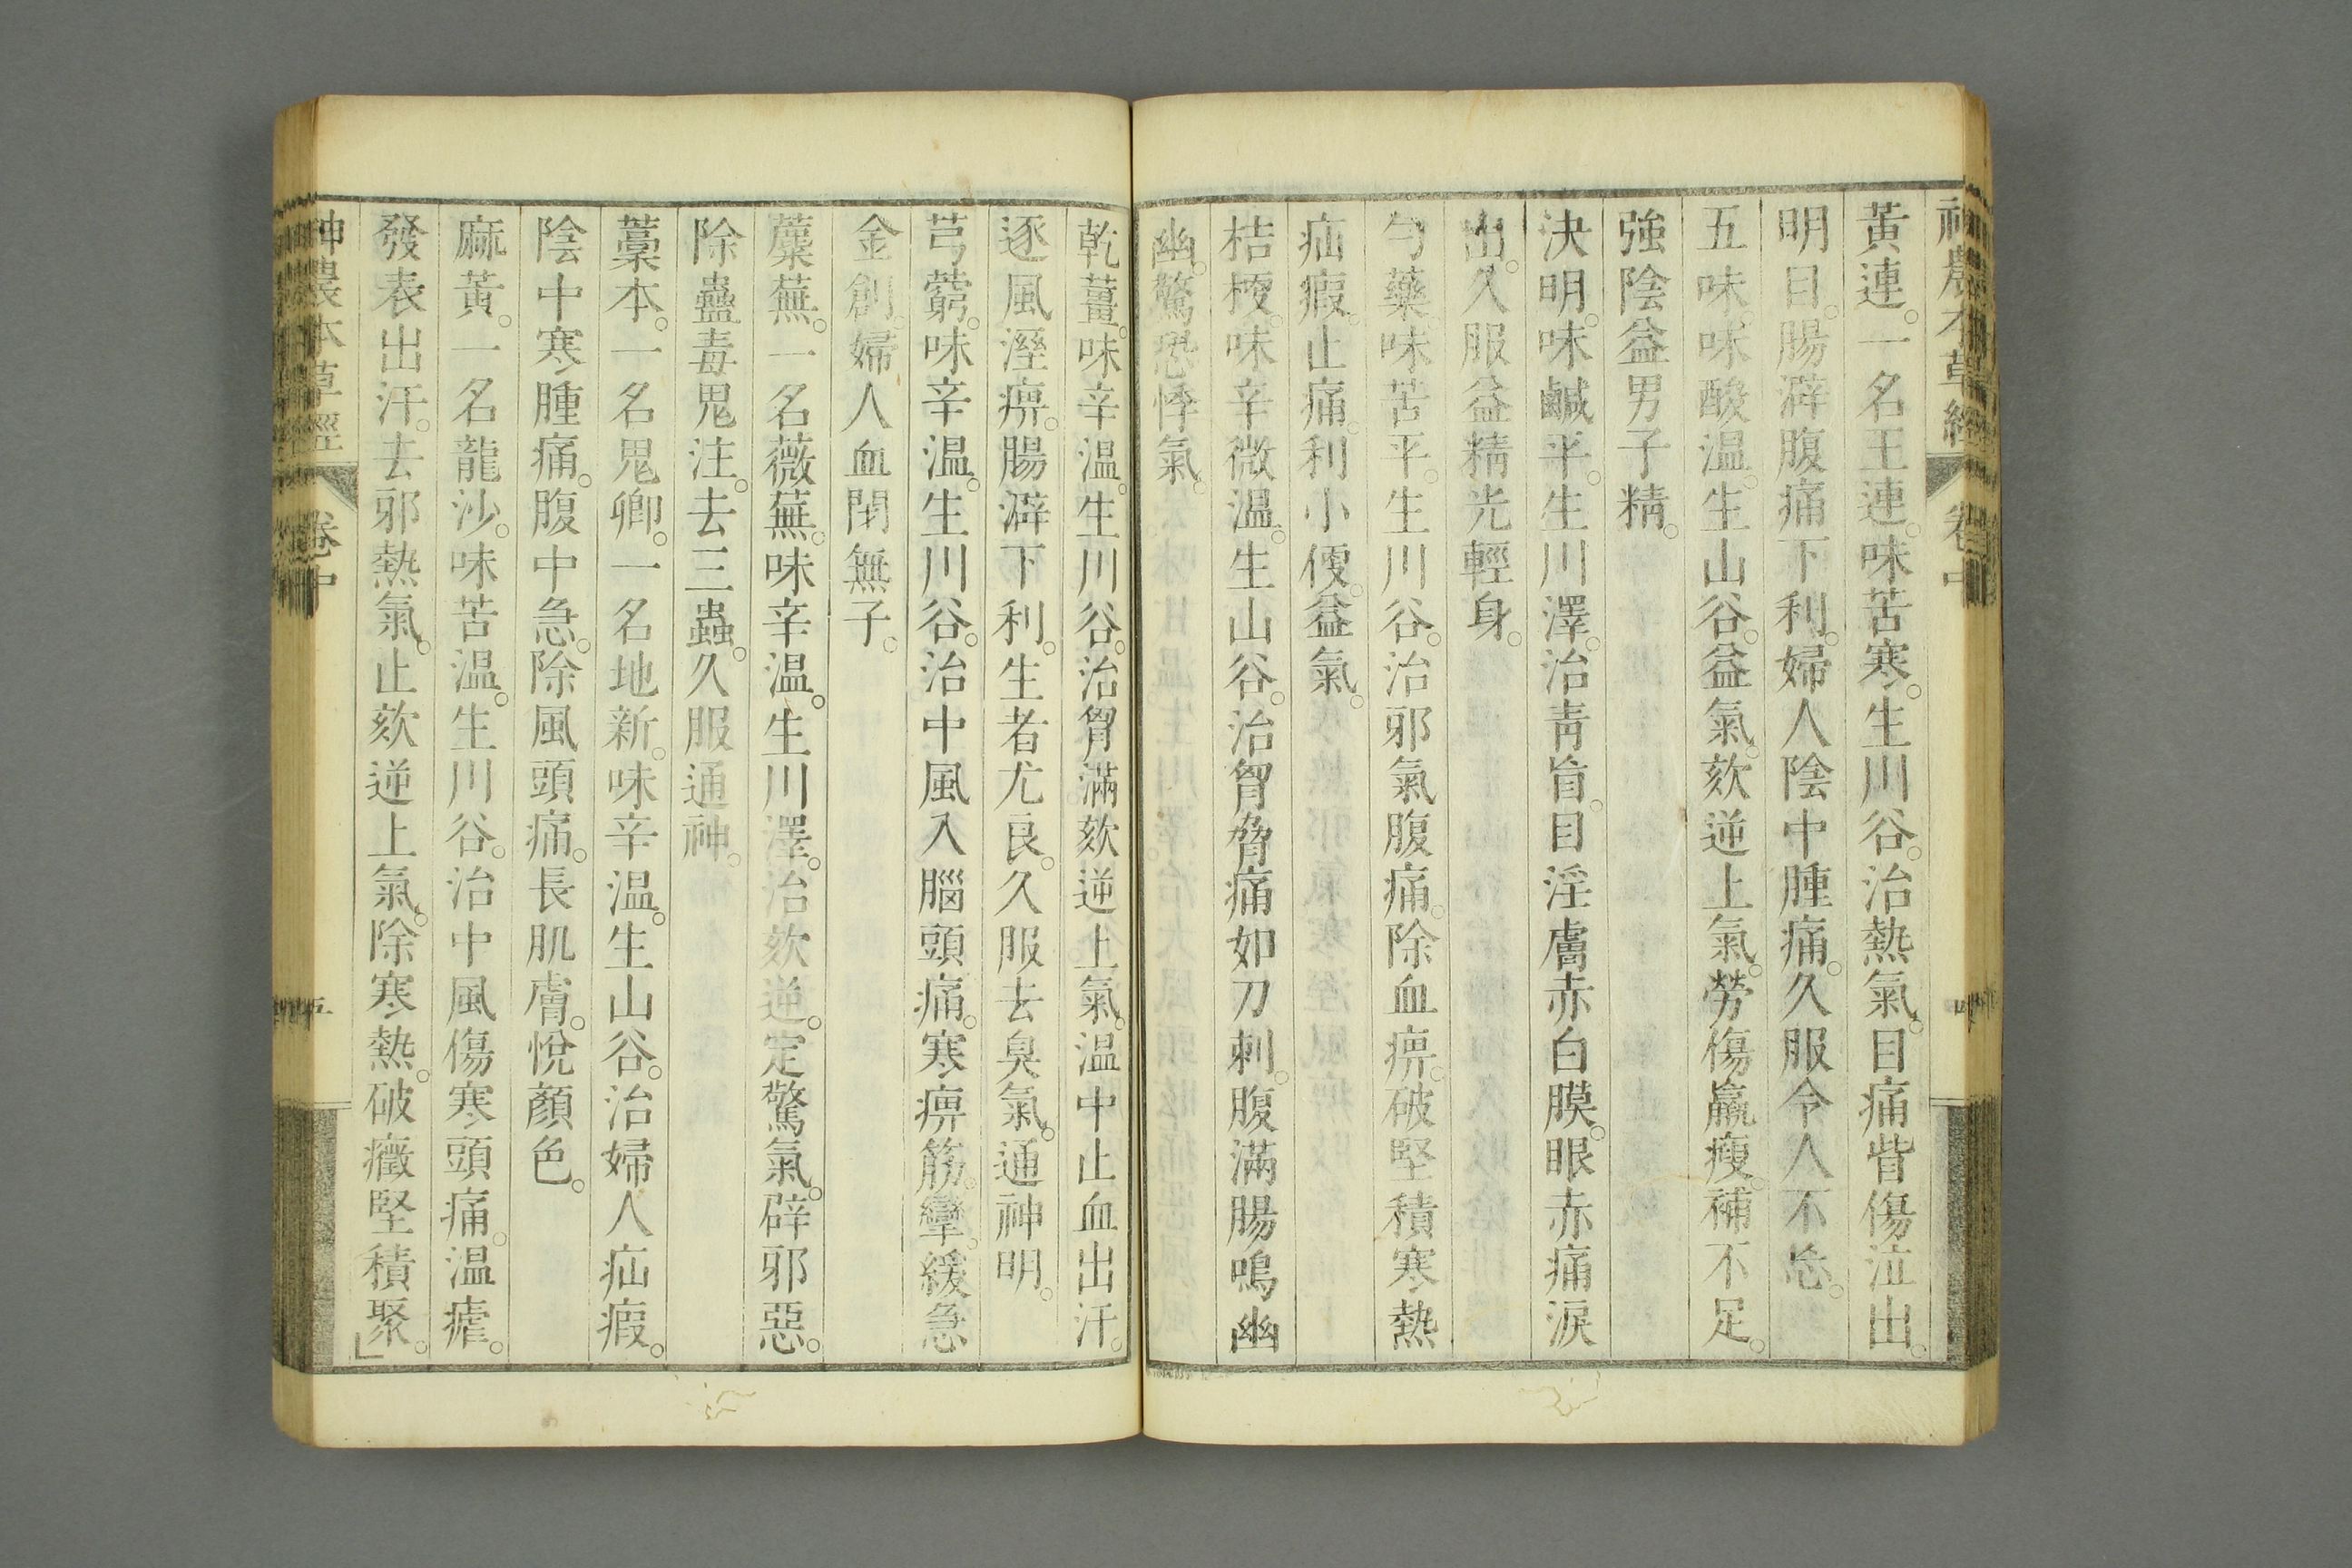 神農本草經 卷中 四
黃連。一名王連。味苦寒。生川谷。治熱氣。目痛眥傷泣出。
明目。腸澼腹痛下利。婦人陰中腫痛。久服令人不忘。
五味。味酸温。生山谷。益氣。欬逆上氣。勞傷羸瘦。補不足。
強陰益男子精。
決明。味鹹平。生川澤。治靑盲。目淫膚赤白膜。眼赤痛淚
出。久服益精光輕身。
勺藥。味苦平。生川谷。治邪氣腹痛。除血痹。破堅積寒熱
疝瘕。止痛。利小便。益氣。
桔梗。味辛微温。生山谷。治胷脅痛如刀刺。腹滿腸鳴幽
幽。驚恐悸氣。
乾薑。味辛温。生川谷。治胷滿欬逆上氣。温中止血出汗。
逐風溼痹。腸澼下利。生者尤良。久服去臭氣。通神明。
芎藭。味辛温。生川谷。治中風入腦頭痛。寒痹筋攣。緩急
金創。婦人血閉無子。
蘪蕪。一名薇蕪。味辛温。生川澤。治欬逆。定驚氣。辟邪惡。
除蠱毒鬼注。去三蟲。久服通神。
藁本。一名鬼卿。一名地新。味辛温。生山谷。治婦人疝瘕。
陰中寒腫痛。腹中急。除風頭痛。長肌膚。悅顏色。
麻黃。一名龍沙。味苦温。生川谷。治中風傷寒頭痛。温瘧。
發表出汗。去邪熱氣。止欬逆上氣。除寒熱。破癥堅積聚。」
神農本草經 卷中 五